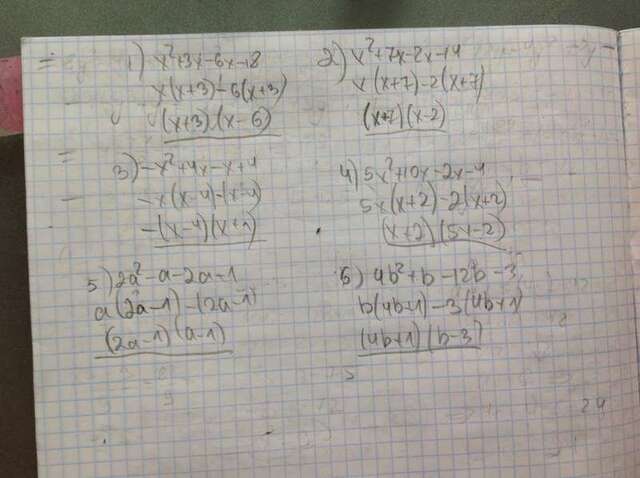 1) x²+3x-6x-18
x(x+3)-6(x+3)
(x+3)(x-6)
2) x²+7x-2x-14
x(x+7)-2(x+7)
(x+7)(x-2)
3) -x²+4x-x+4
-x(x-4)-(x-4)
-(x-4)(x+1)
4) 5x²+10x-2x-4
5x(x+2)-2(x+2)
(x+2)(5x-2)
5) 2a²-a-2a-1
a(2a-1)-(2a-1)
(2a-1)(a-1)
6) 4b²+b-12b-3
b(4b+1)-3(4b+1)
(4b+1)(b-3)